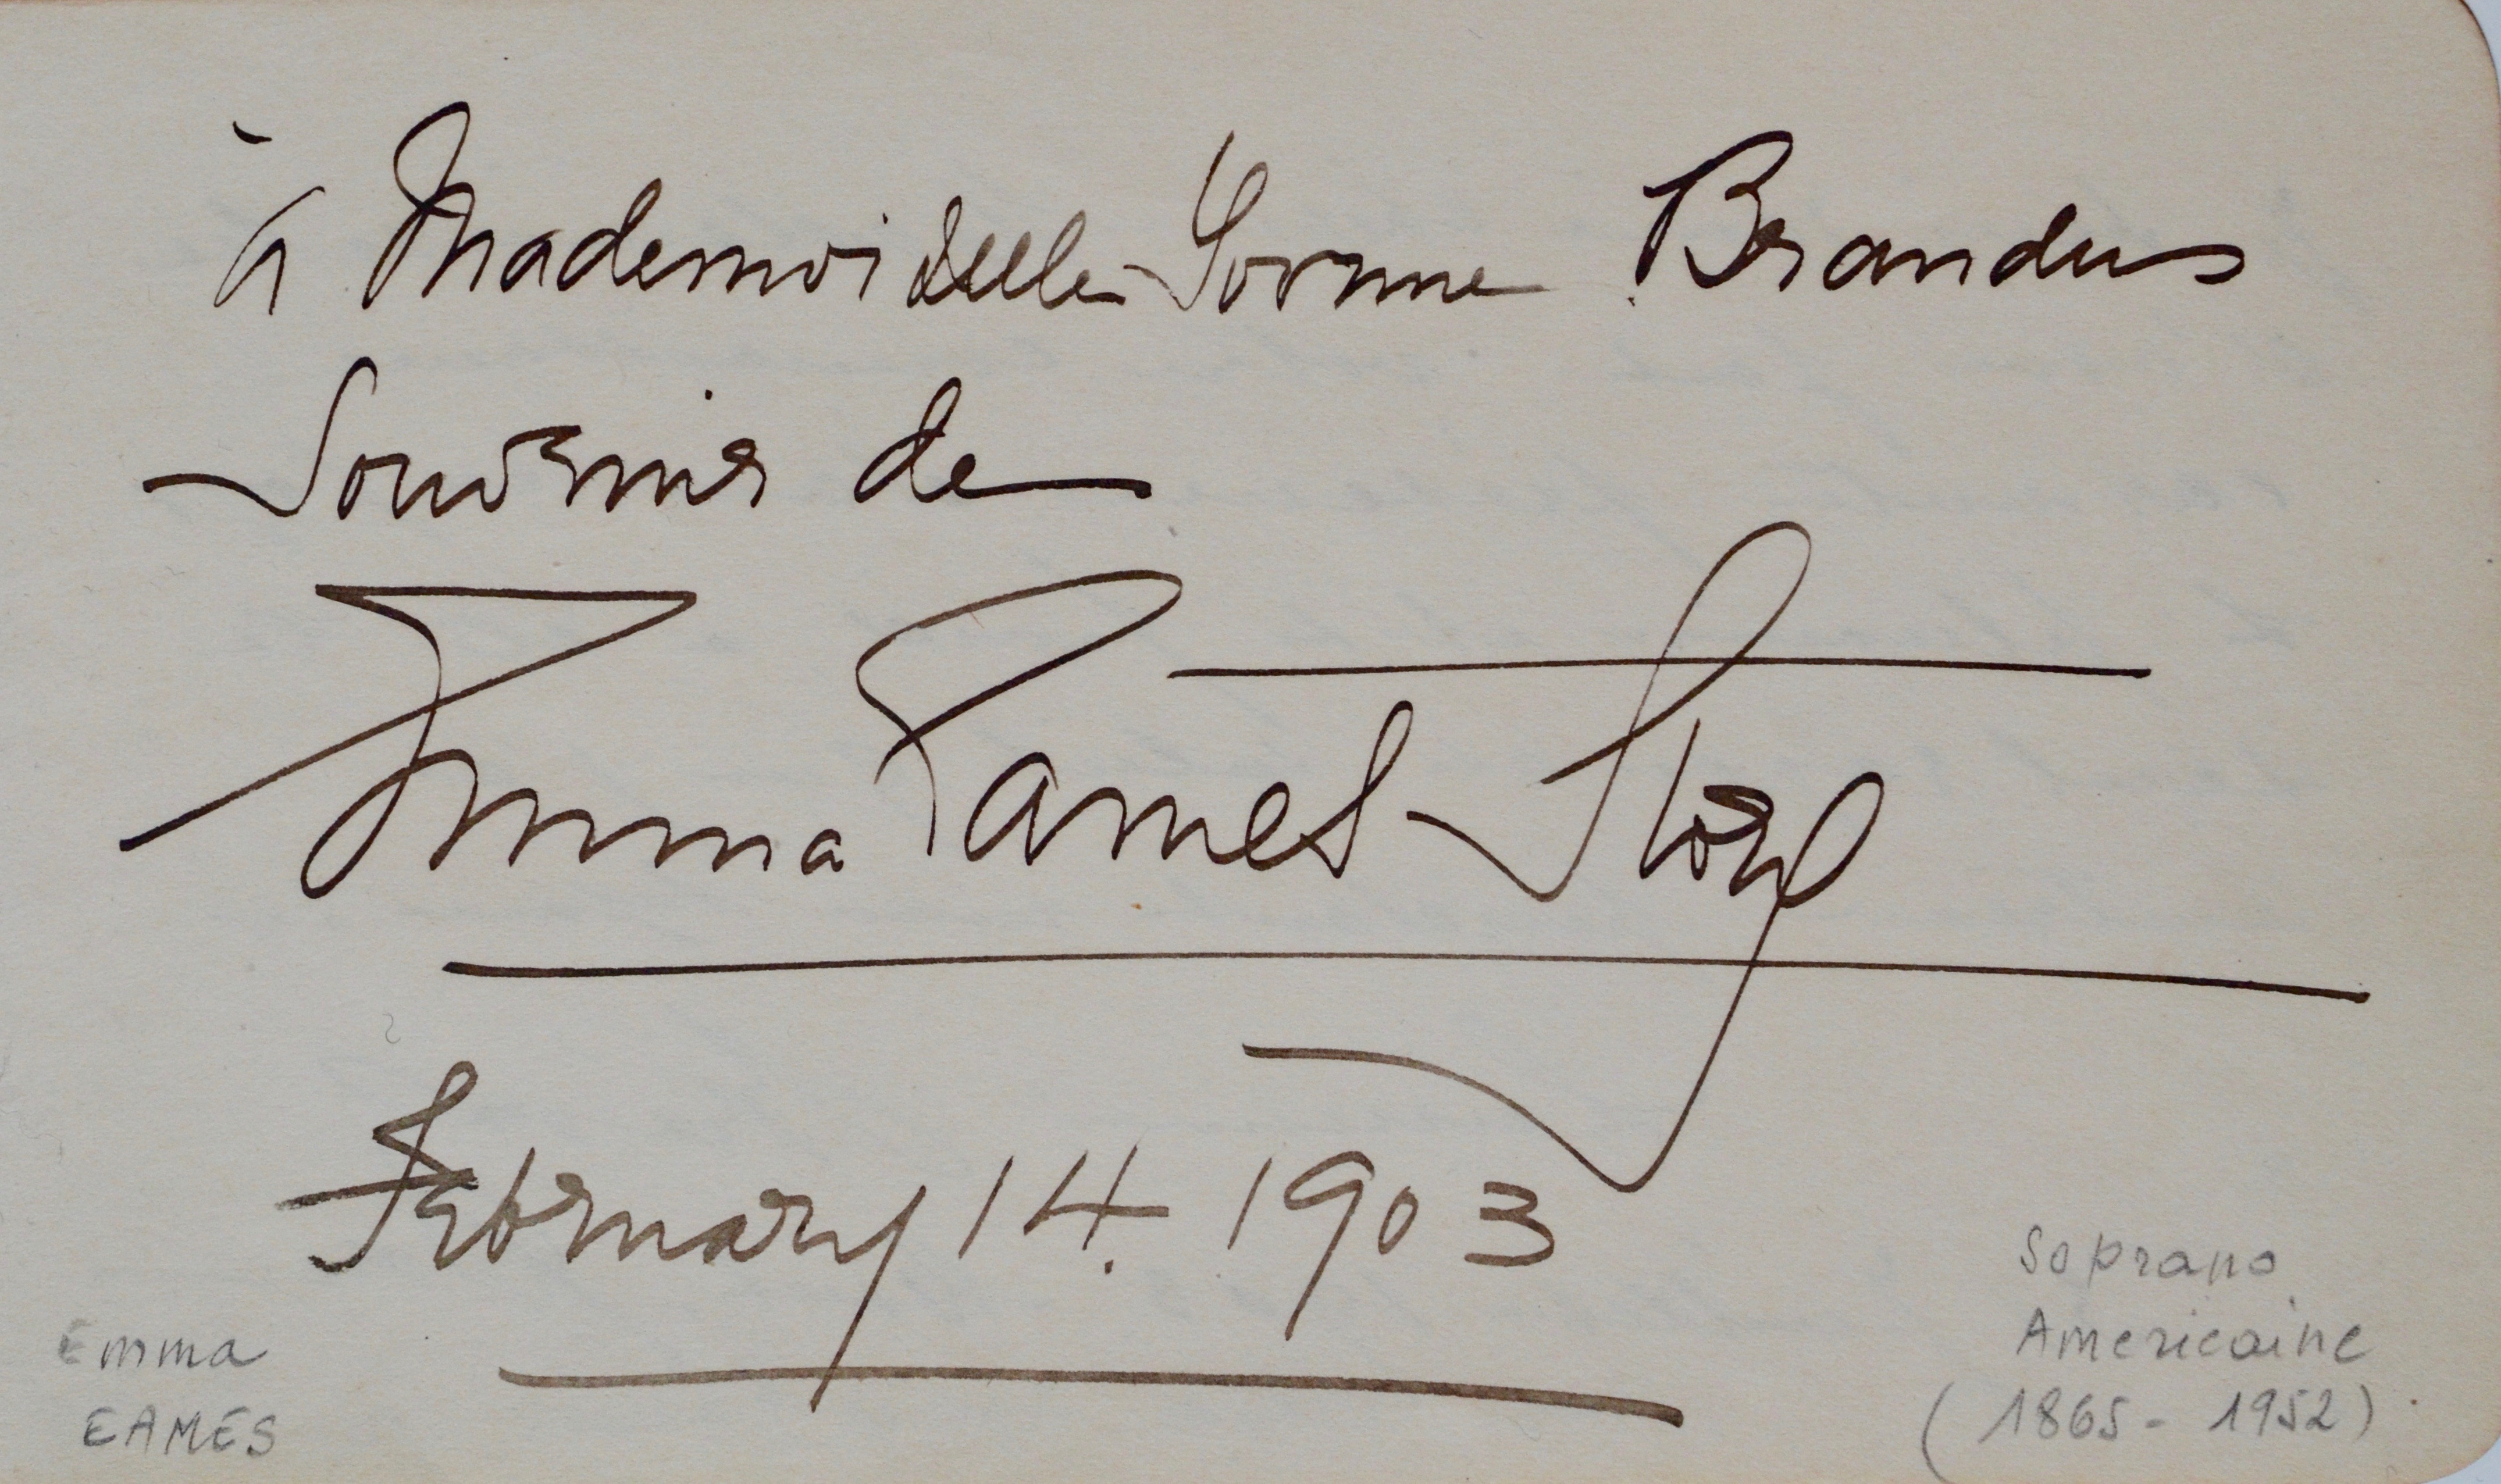 à Mademoiselle Yvonne Brandus
Souvenir de
Emma Eames Story
February 14. 1903
Emma
EAMES
Soprano
Americaine
(1865 - 1952)